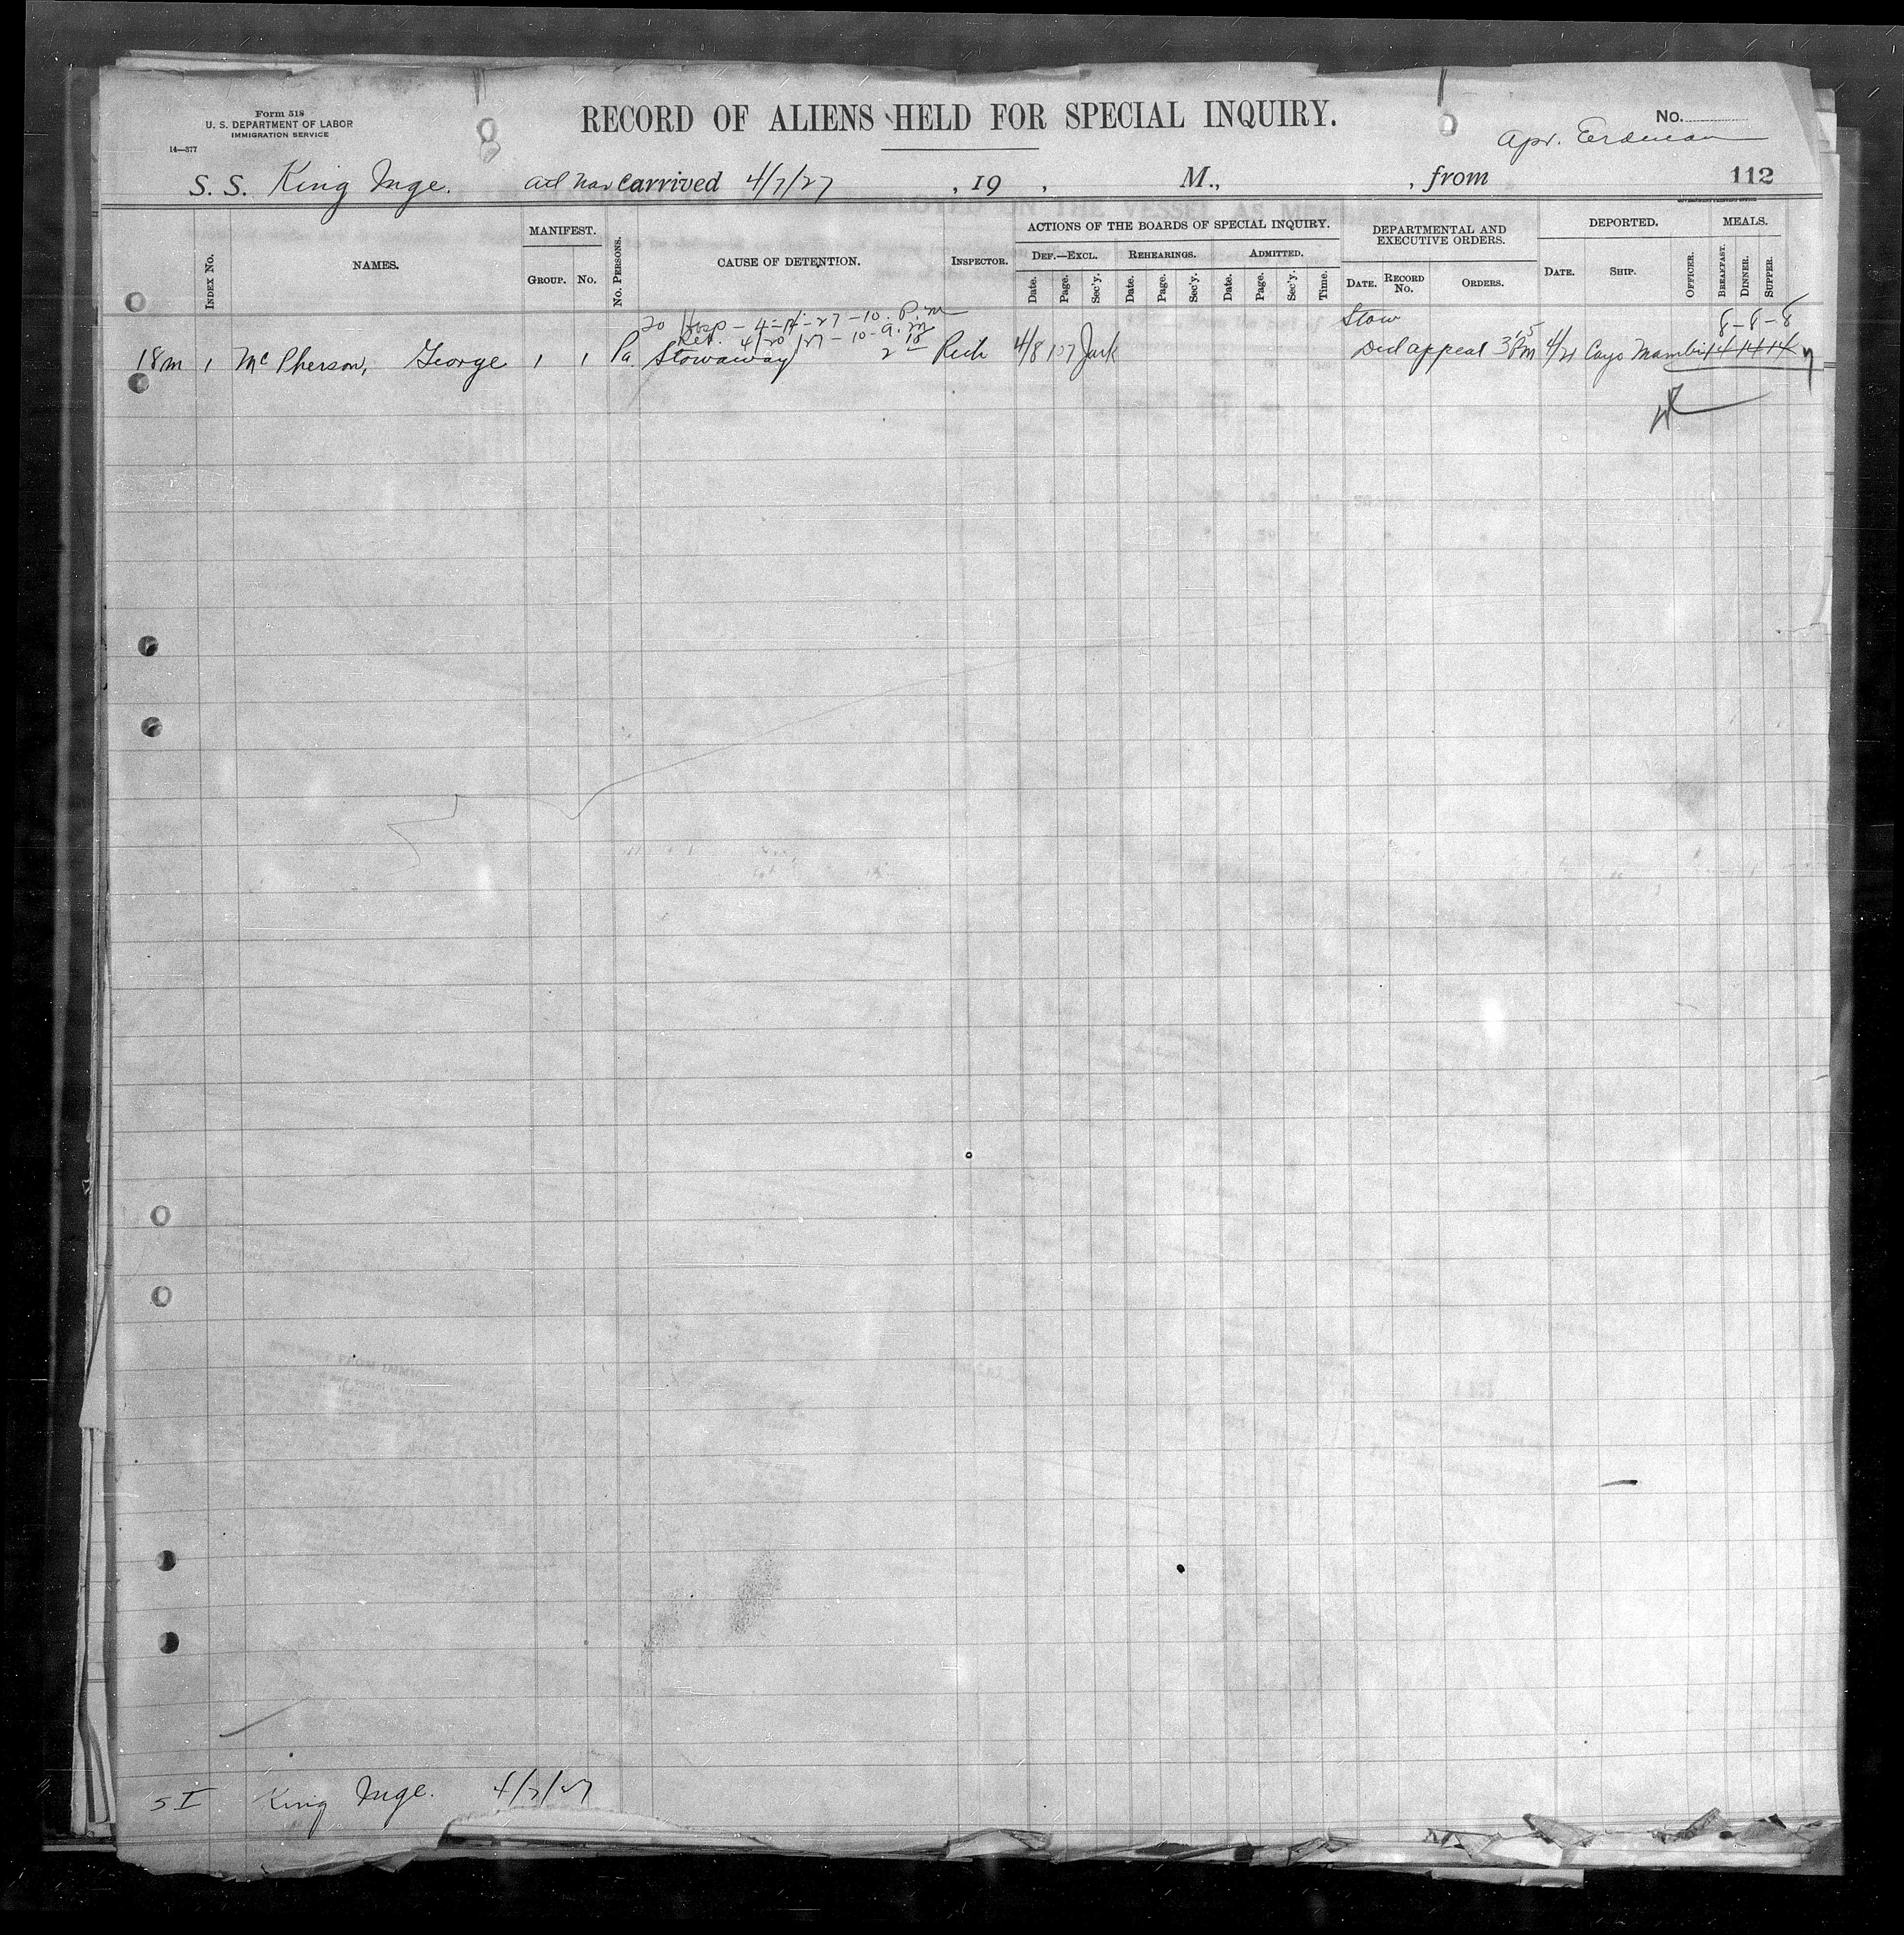 Form 518
U. S. DEPARTMENT OF LABOR
IMMIGRATION SERVICE
14—377
RECORD OF ALIENS HELD FOR SPECIAL INQUIRY.
No.
S. S. King Inge. arrived 4/7/27 , 19 , M., , from 112
INDEX No.
NAMES.
MANIFEST.
GROUP. No.
No. PERSONS.
CAUSE OF DETENTION.
INSPECTOR.
ACTIONS OF THE BOARDS OF SPECIAL INQUIRY.
DEF.—EXCL. REHEARINGS. ADMITTED.
Date. Page. Sec'y. Date. Page. Sec'y. Date. Page. Sec'y. Time.
DEPARTMENTAL AND
EXECUTIVE ORDERS.
DATE. RECORD No. ORDERS.
DEPORTED.
DATE. SHIP. OFFICER.
MEALS.
BREAKFAST. DINNER. SUPPER.
To Hosp - 4-14-27-10. P.m
Ret. 4/20/27-10-a.m
Stow
8-8-8
18m 1 McPherson, George 1 1 Pa Stowaway 4/8 107 appeal 4/21 Cayo Mambi 14 14 14
S I King Inge. 4/7/27